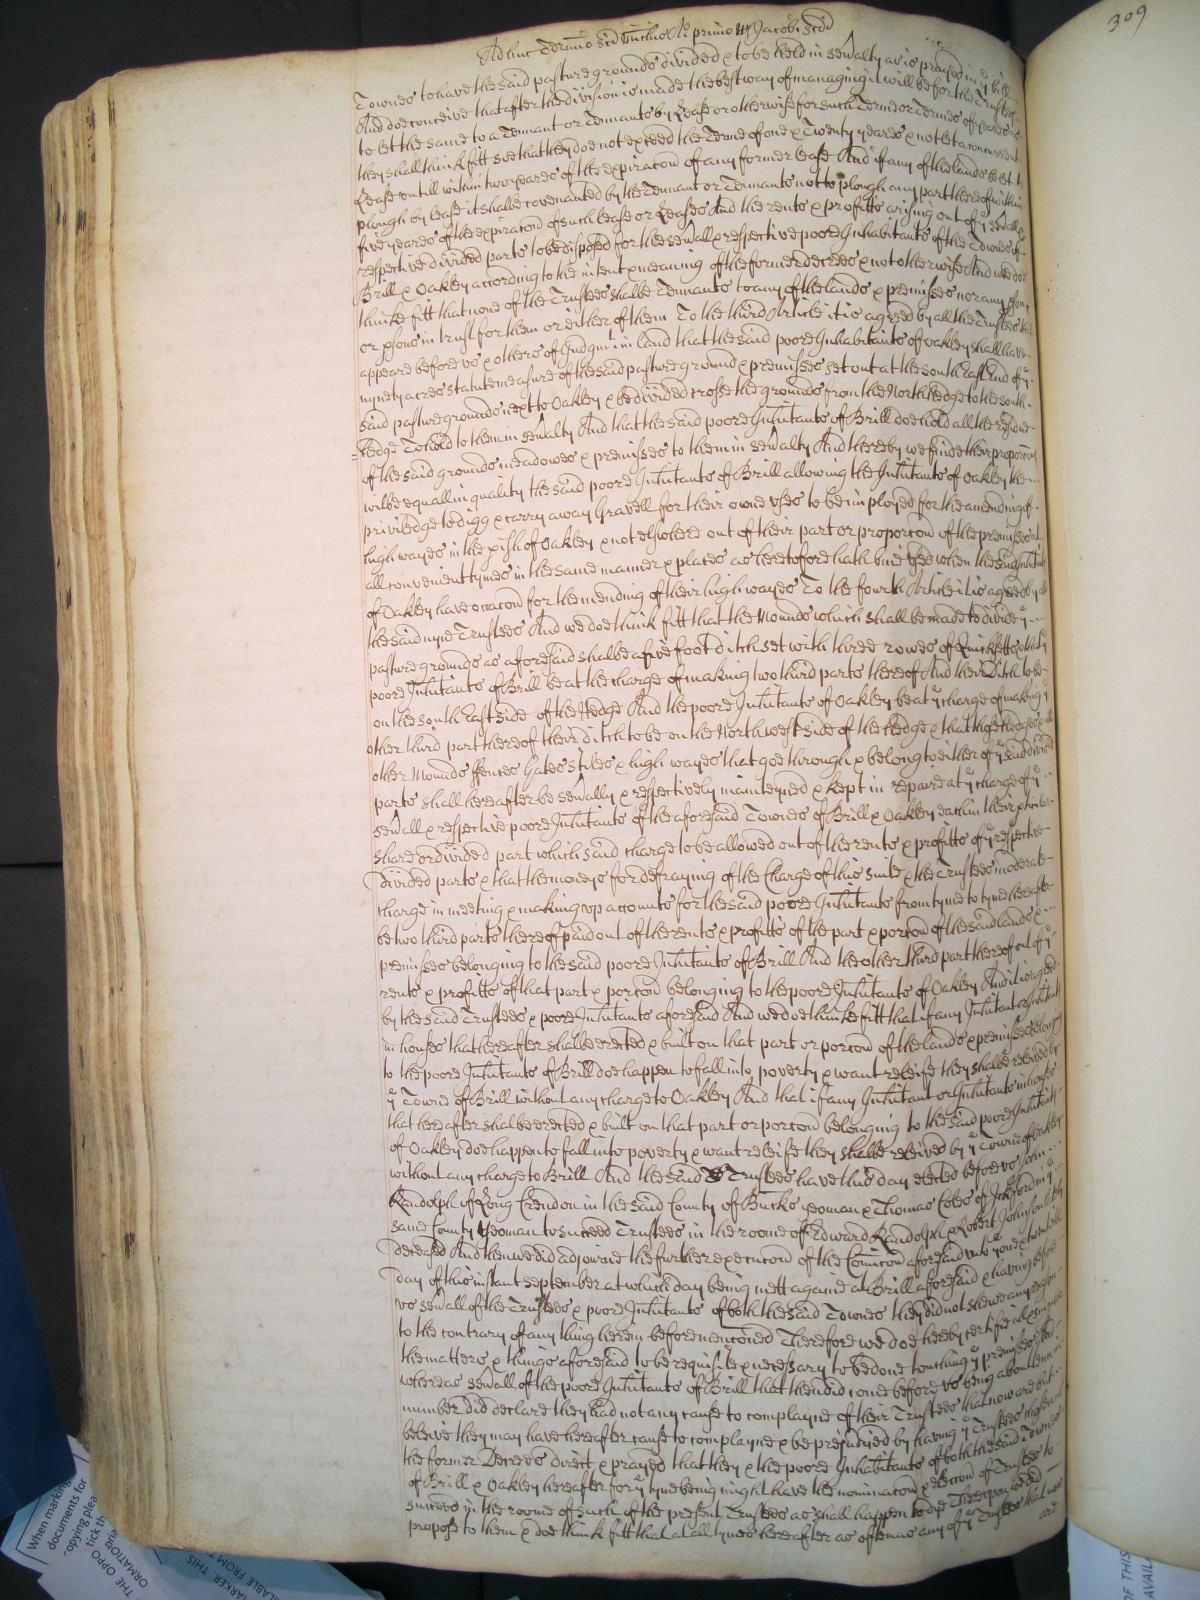 309
Adhuc Termino Scti Michis Ao primo Jacobi Scdi
Townes to have the said pasture grounds divided & to be held in sevalty as is prayed in ye bill
And doe conceive that after the division is made the best way of managing it will be for the Trustees
to let the same to a Tennant or Tennants by Lease or otherwise for such Terme or Termes of yeares as
they shall think fitt soe that they doe not exceed the Terme of one & Twenty yeares & not let a concurrent
Lease untill within two yeares of the expiracon of any former lease And if any of the lands be let to
plough by lease it shalbe covenanted by the Tennant or Tennants not to plough any part thereof within
five yeares of the expiracon of such lease or Leases And the rents & profitts arising out of ye sevall &
respective divided parts to be disposed for the sevall & respective poore Inhabitants of the Townes of
Brill & Oakley according to the intent & meaning of the former decrees & not otherwise And we doe
thinke fitt that none of the Trustees shalbe Tennants to any of the lands & premisses nor any pson
or psons in trust for them or either of them To the third Article it is agreed by all the Trustees that
appeard before us & others of Judgmt in land that the said poore Inhabitants of Oakley shall have
nynety acres statute measure of the said pasture ground & premisses set out at the South East End of ye
said pasture grounds next to Oakley & be divided crosse the grounds from the North hedge to the South
hedge To hold to them in sevalty And that the said poore Inhitants of Brill doe hold all the residue
of the said grounds meadowes & premisses to them in sevalty And thereby we finde their proporcon
wilbe equall in quality the said poore Inhitants of Brill allowing the Inhitants of Oakley the
priviledge to digg & carry away Gravell for their owne uses to be imployed for the amending of
high wayes in the pish of Oakley & not elswhere out of their part or proporcon of the premisses at
all convenient tymes in the same manner & places as heretofore hath bine used when the said Inhitants
of Oakley have occacon for the mending of their high wayes To the fourth Article it is agreed by
the said nyne Trustees And we doe think fitt that the Mounds which shall be made to divide ye
pasture grounds as aforesaid shalbe a five foot ditch set with three rowes of Quicksetts that ye
poore Inhitants of Brill be at the charge of making two third parts thereof And their Ditch to be
on the South East side of the Hedge And the poore Inhitants of Oakley be at ye charge of making ye
other third part thereof their ditch to be on the North west side of the hedge & that those hedges & all
other Mounds ffences Gates Stiles & high wayes that goe through & belong to either of ye said divided
parts shall hereafter be sevally & respectively mainteyned & kept in repaire at ye charge of ye
sevall & respective poore Inhitants of the aforesaid Townes of Brill & Oakley each in their pticular
share or divided part which said charge to be allowed out of the rents & profitts of ye respective
divided parts & that the moneys for defraying of the Charge of this suite & the Trustees moderate
charge in meeting & making up accounts for the said poore Inhitants from tyme to tyme hereafter
be two third parts thereof paid out of the rents & profitts of the part & porcon of the said lands &
premisses belonging to the said poore Inhitants of Brill And the other third part thereof out of ye
rents & profitts of that part & porcon belonging to the poore Inhitants of Oakley And it is agreed
by the said Trustees & poore Inhitants aforesaid And we doe thinke fitt that if any Inhitant or Inhitants
in houses that hereafter shalbe erected & built on that part or porcon of the lands & premisses belonging
to the poore Inhitants of Brill doe happen to fall into poverty & want releife they shalbe releived by
ye Towne of Brill without any charge to Oakley And that if any Inhitant or Inhitants in houses
that hereafter shalbe erected & built on that part or porcon belonging to the said poore Inhitants
of Oakley doe happen to fall into poverty & want releife they shalbe releived by ye Towne of Oakley
without any charge to Brill And the said Trustees have this day elected before us John
Randolph of Long Crendon in the said County of Bucks yeoman & Thomas Coles of Ickford in ye
same County Yeoman to succeed Trustees in the roome of Edward Randolph & Robert Johnson lately
deceased And then we did adjourne the further execucon of the Comicon aforesaid unto ye one & twentieth
day of this instant September at which day being mett againe at Brill aforesaid & having before
us sevall of the Trustees & poore Inhitants of both the said Townes they did not shew any reason
to the contrary of any thing herein before menconed Therefore we doe hereby certifie all & singular
the matters & things aforesaid to be requisite & necessary to be done touching ye premisses And
whereas sevall of the poore Inhitants of Brill that then did come before us being about tenn in
number did declare they had not any cause to complayne of their Trustees that now are but
beleive they may have hereafter cause to complayne & be prejudiced by having ye Trustees chosen as
the former Decrees direct & prayed that they & the poore Inhabitants of both the said Townes
of Brill & Oakley hereafter for ye tyme being might have the nominacon & eleccon of Trustees to
succeed in the roome of such of the present Trustees as shall happen to dye Thereupon we did
propose to them & doe think fitt that at all tymes hereafter as often as any of ye Trustees that now
are